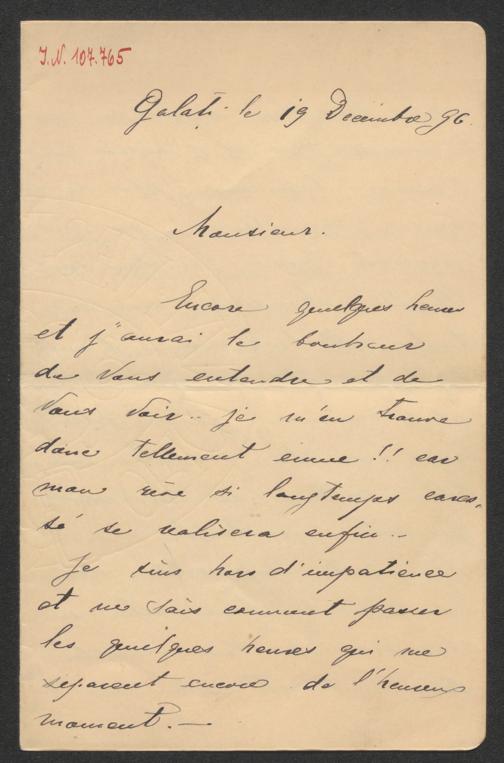 I.N. 107.765
Galați le 19 Decembre 96.
Monsieur.
Encore quelques heures
et j'aurai le bonheur
de Vous entendre et de
Vous voir.. je m'en trouve
donc tellement emue!! car
mon rêve si longtemps cares,
sé se realisera enfin..
Je suis hors d'impatience
et ne sais comment passer
les quelques heures qui me
separent encore de l'heureux
moment. —